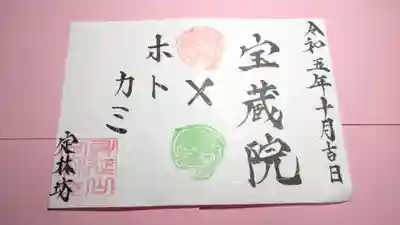 令和五年十月吉日
宝蔵院
×
ホト
カミ
定林坊